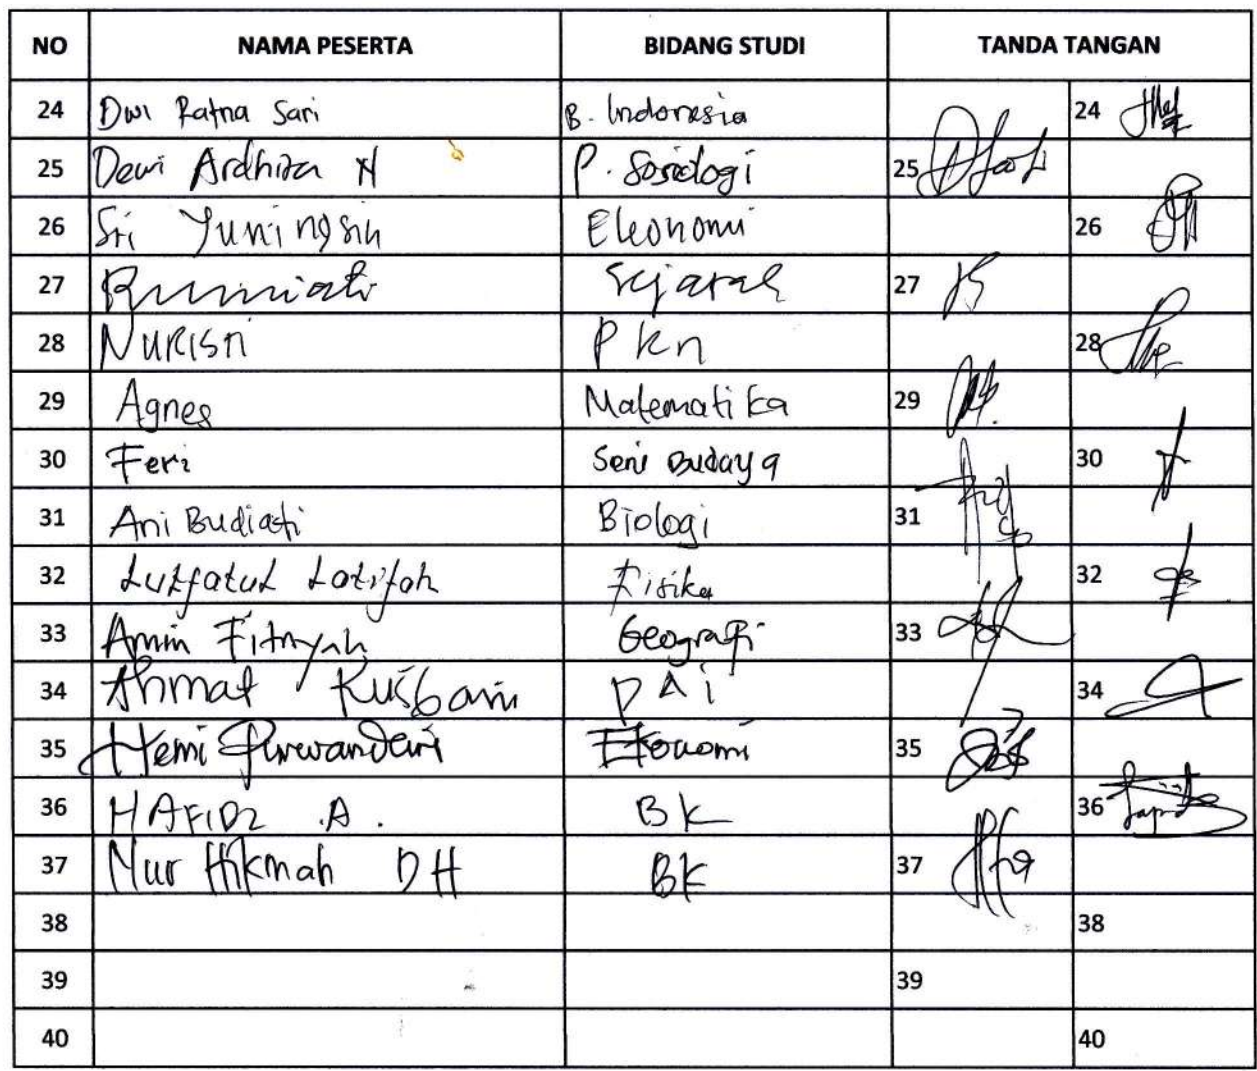 NO NAMA PESERTA BIDANG STUDI TANDA TANGAN
24 Dwi Ratna Sari B. Indonesia 24
25 Dewi Ardhiza N P. Sosiologi 25
26 Sri Yuningsih Ekonomi 26
27 Rumiati Sejarah 27
28 NURISTI PKn 28
29 Agnes Matematika 29
30 Feri Seni Budaya 30
31 Ani Budiati Biologi 31
32 Lutfatul Latifah Fisika 32
33 Amin Fitriyah Geografi 33
34 Ahmat Kusbani PAi 34
35 Hemi Purwandari Ekonomi 35
36 HAFIDZ .A. BK 36
37 Nur Hikmah DH BK 37
38 38
39 39
40 40